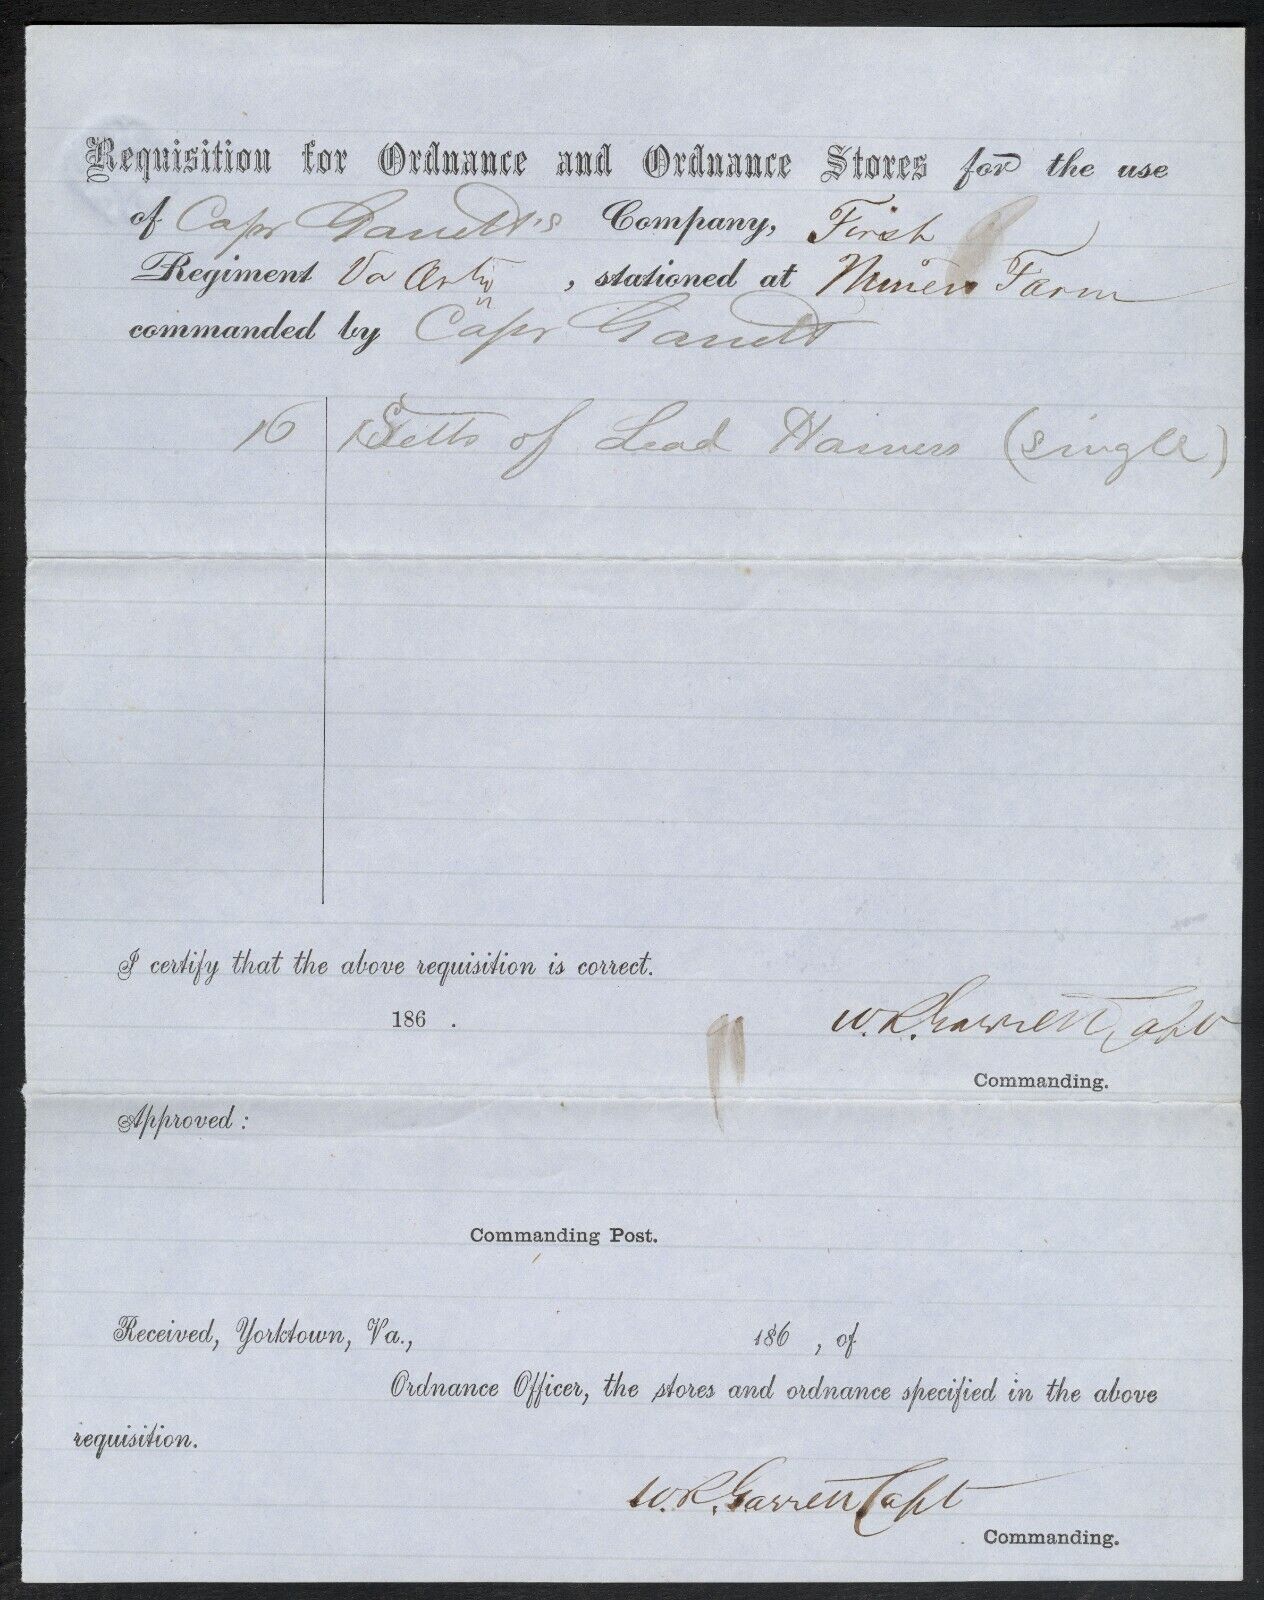 Requisition for Ordnance and Ordnance Stores for the use
of Capt Garrett's Company, First
Regiment Va Arty, stationed at Farm
commanded by Capt Garrett
16 Setts of Lead Harness (single)
I certify that the above requisition is correct.
186 .
W. R. Garrett Capt
Commanding.
Approved:
Commanding Post.
Received, Yorktown, Va., 186 , of
Ordnance Officer, the stores and ordnance specified in the above
requisition.
W. R. Garrett Capt
Commanding.